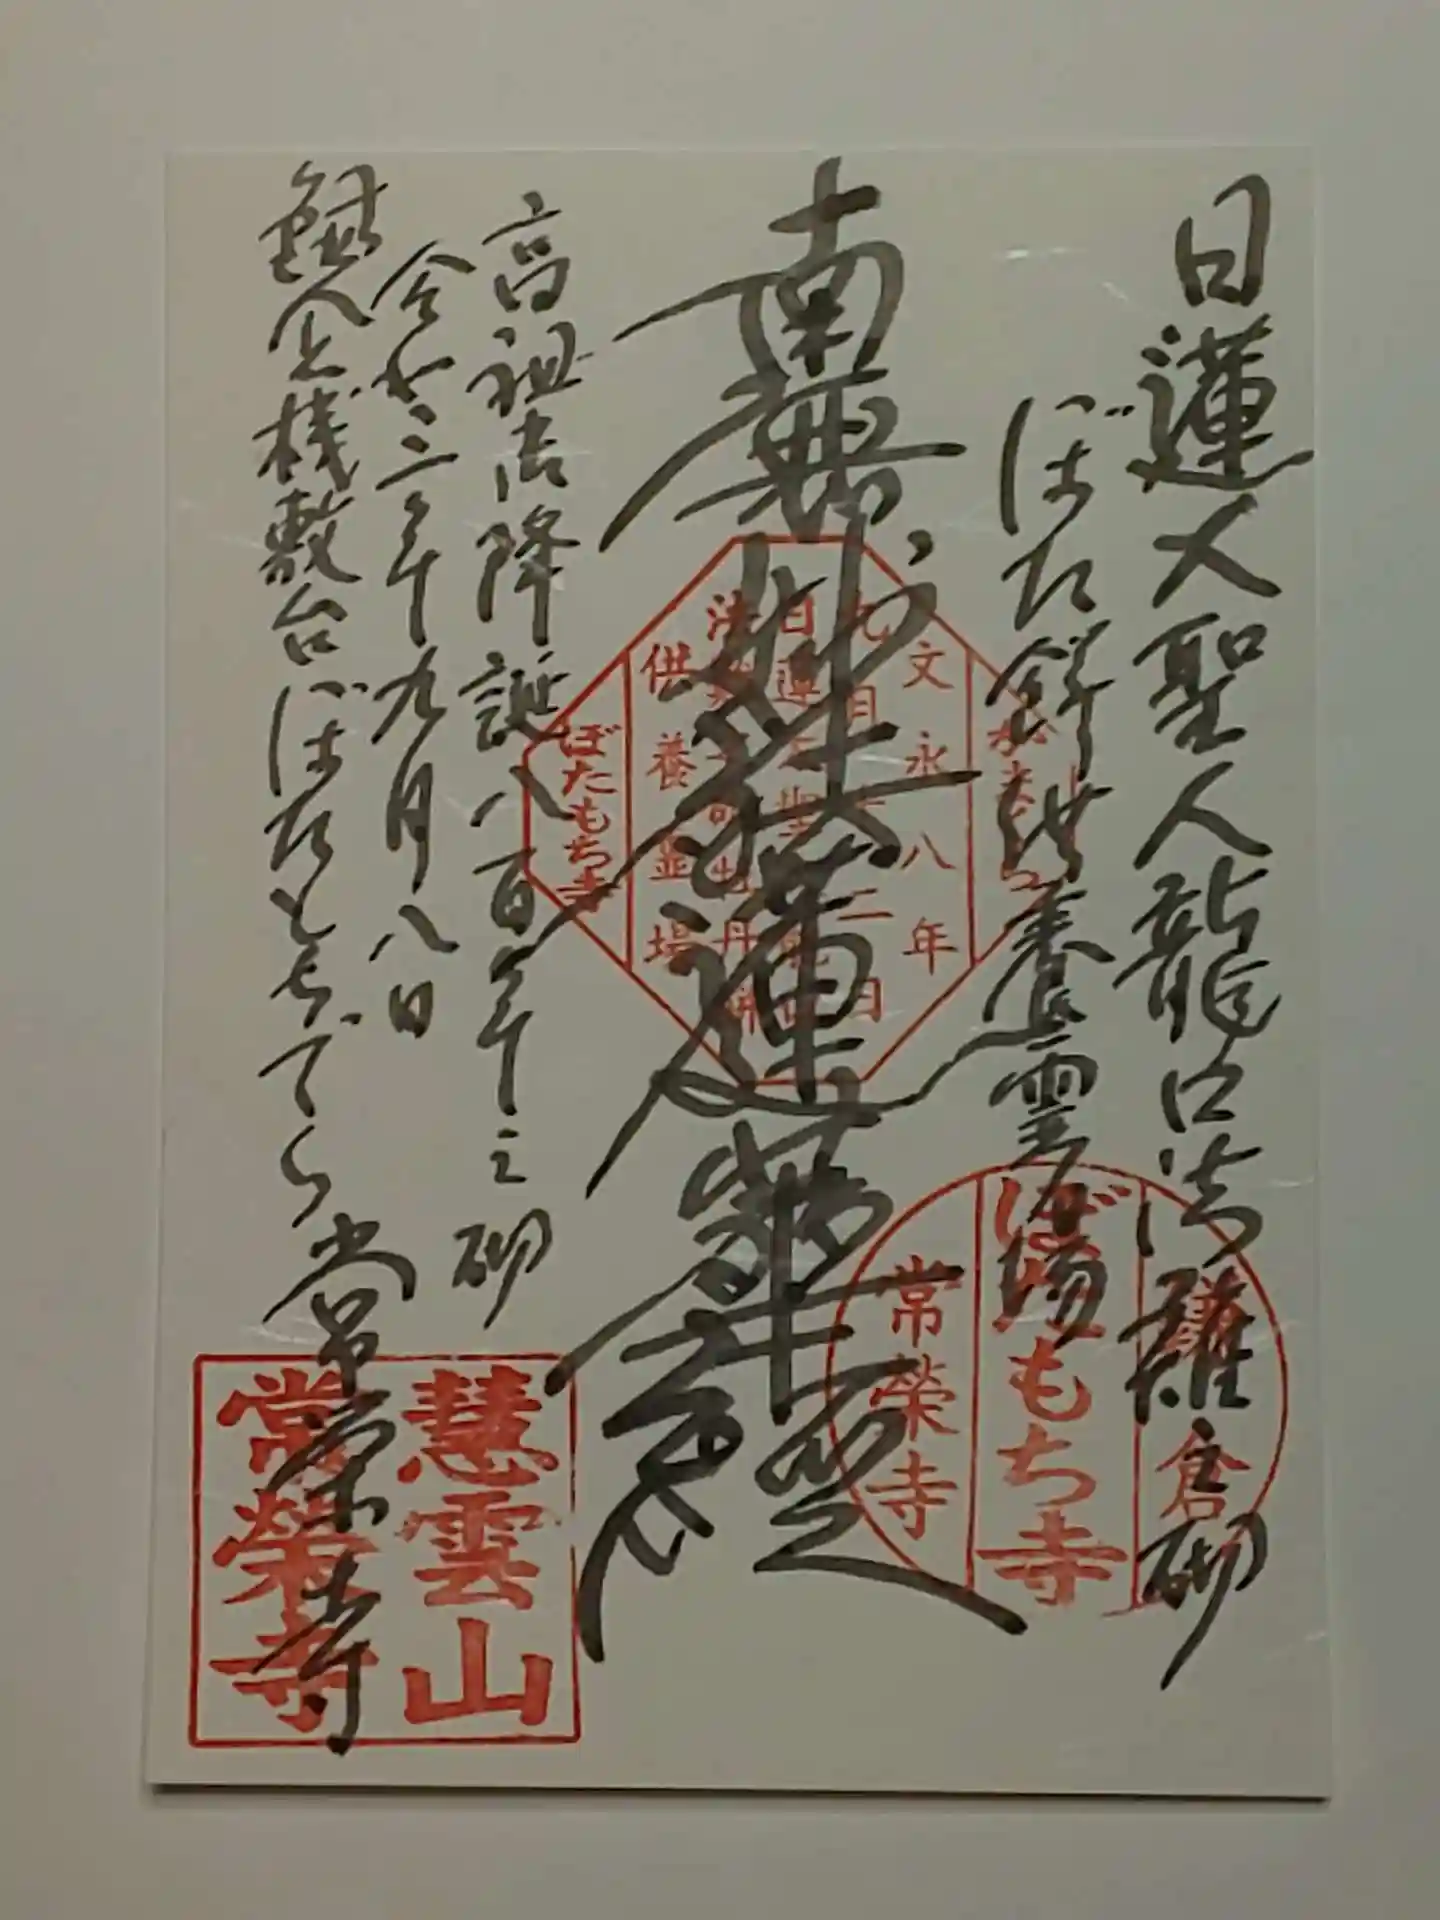 日蓮大聖人龍口法難之砌
ぼた餅供養霊場
南無妙法蓮華経
高祖御降誕八百年之砌
令和三年九月八日
鎌倉桟敷台ぼたもちでら常栄寺
文永八年
九月十二日
供養霊場
ぼたもち寺
鎌倉
ぼたもち寺
常榮寺
慧雲山
常榮寺